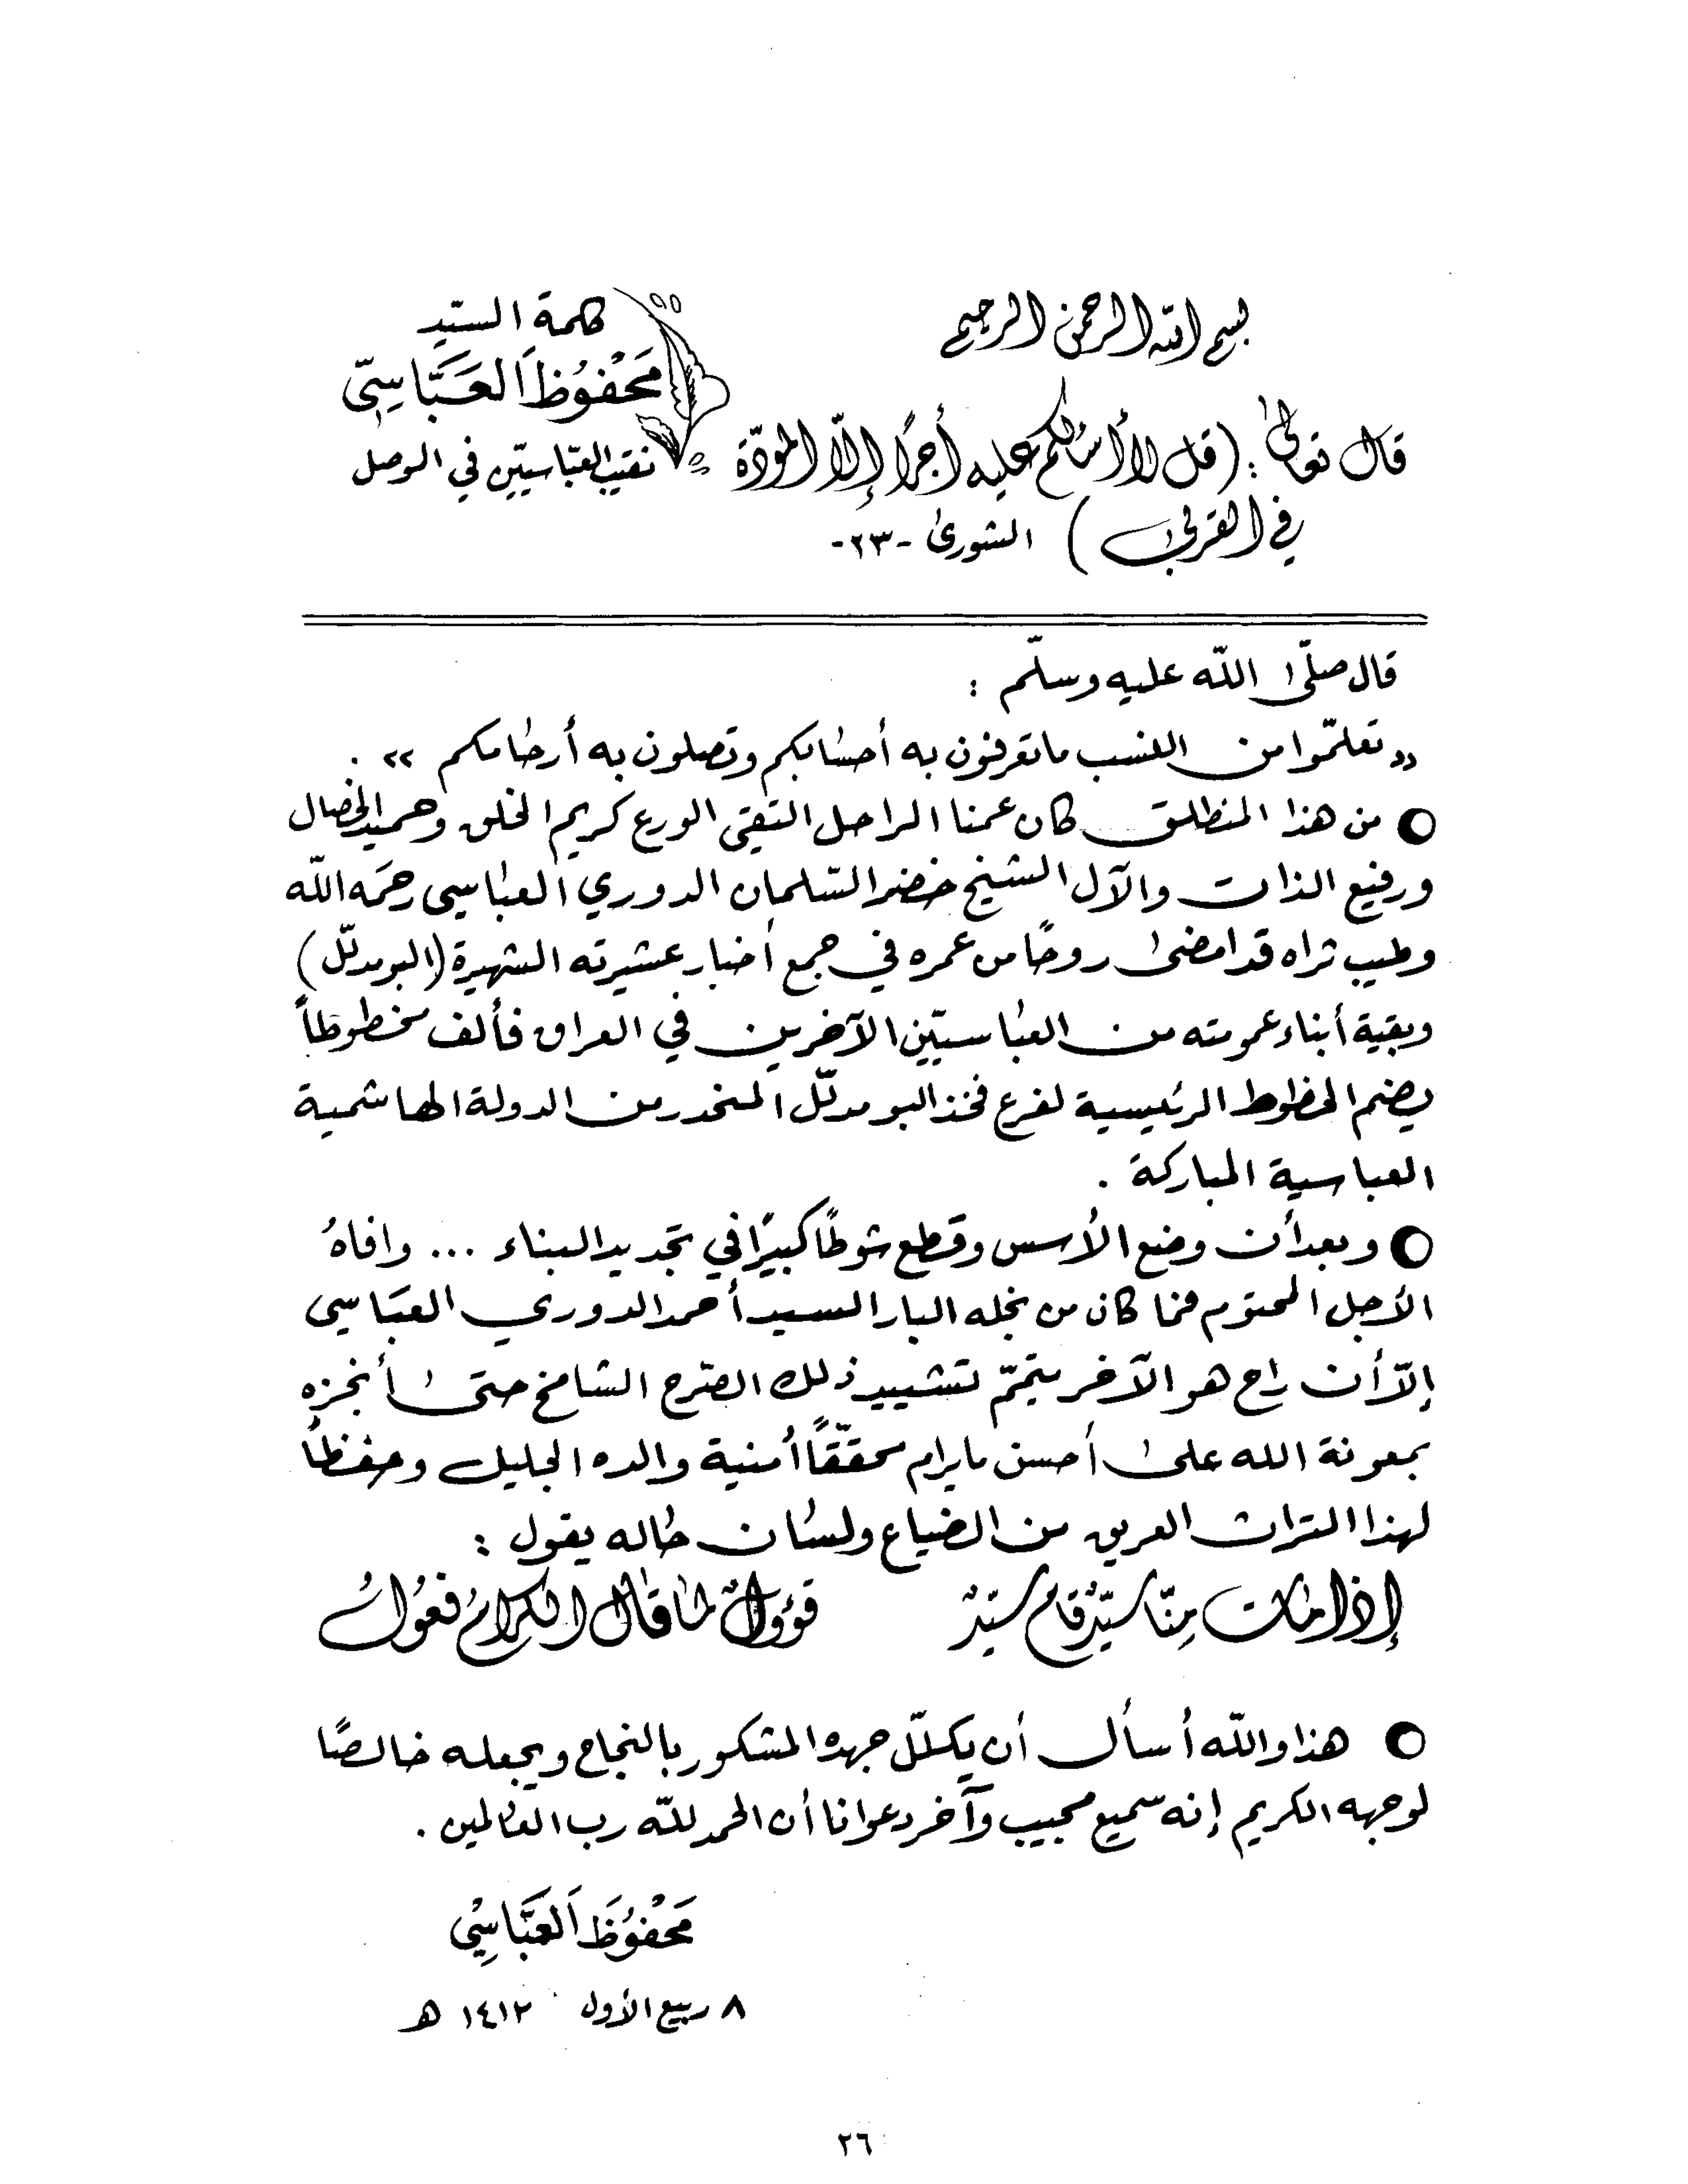 بسم الله الرحمن الرحيم
كلمة السيّد
مَحْفُوُظ اَلعَبَّاسِيّ
نقيب العبّاسيّين في الموصل
قال تعالى : ( قل لا أسئالكم عليه أجرًا إلّا المودّة
في القربى ) الشورى -٢٣-
قال صلّى الله عليه وسلّم :
« تعلّموا من النسب ما تعرفون به أحسابكم وتصلون به أرحامكم » .
○ من هذا المنطلق كان عمنا الراحل التقي الورع كريم الخلق وحميد الخصال
ورفيع الذات والآل الشيخ خضر السّلمان الدوري العباسي رحمَه اللّه
وطيب ثراه قد امضى روحًا من عمره في جمع أخبار عشيرته الشهيرة (البو مدلّل)
وبقية أبناء عمومته من العباسيّين الآخرين في العراق فألف مخطوطاً
يضم الخطوط الرئيسية لفرع فخذ البو مدلّل المنحدر من الدولة الهاشمية
العباسية المباركة .
○ وبعد أن وضع الأسس وقطع شوطًا كبيرًا في تجديد البناء ... وافاهُ
الأجل المحتوم فما كان من نجله البار السيد أحمد الدوري العبَاسي
إلّا أن راح هو الآخر يتمّم تشييد ذلك الصّرح الشامخ حتى أنجزه
بمعونة الله على أحسن ما يرام محقّقًا أمنية والده الجليل وحفظاً
لهذا التراث العريق من الضياع ولسان حاله يقول :
إذا مات مِنّا سيّدٌ قام سيّدٌ
قؤولٌ لما قال الكرامُ فعُولُ
○ هذا واللّه أسأل أن يكلّل جهده المشكور بالنجاح ويجعله خالصًا
لوجهه الكريم إنه سميع مجيب وآخر دعوانا أن الحمد للّه رب العالمين .
مَحْفُوُظ اَلعَبَّاسِيْ
٨ ربيع الأول ١٤١٢ هـ
٢٦